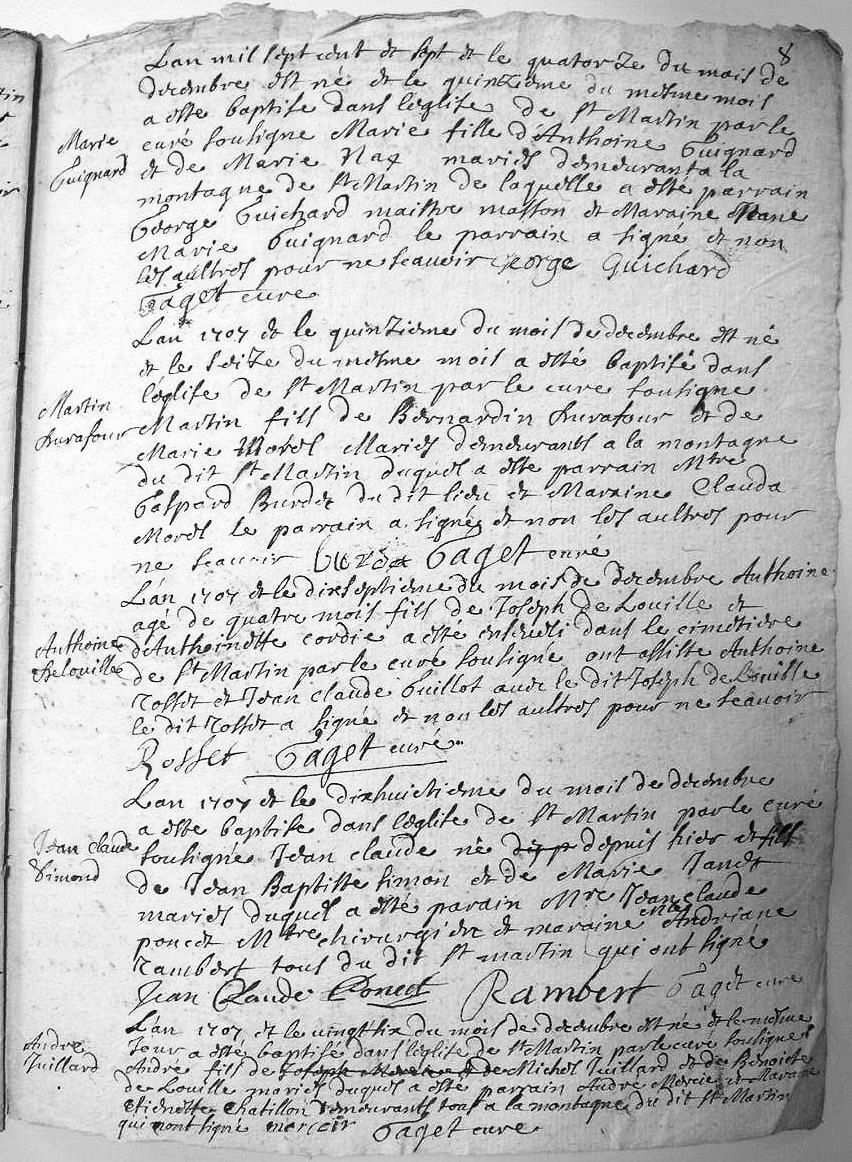 8
L'an mil sept cent et sept et le quatorze du mois de
decembre est né et le quinzieme du mesme mois
a esté baptisé dans l'eglise de St Martin par le
Marie
Guignard
curé sousigné Marie fille d'Anthoine Guignard
et de Marie Nax mariés demeurants a la
montagne de St Martin de laquelle a esté parrain
George Guichard maistre masson et Maraine Jeane
Marie Guignard le parrain a signé et non
les aultres pour ne scauoir George Guichard
Gaget curé
L'an 1707 et le quinzieme du mois de decembre est né
et le seize du mesme mois a esté baptisé dans
l'eglise de St Martin par le curé sousigné
Martin
durafour
Martin fils de Bernardin durafour et de
Marie Morel Mariés demeurants a la montagne
du dit St Martin duquel a esté parrain Mtre
Gaspard Burdet du dit lieu et Maraine Clauda
Morel le parrain a signé et non les aultres pour
ne scauoir Gaget curé
L'an 1707 et le dixseptieme du mois de decembre Anthoine
agé de quatre mois fils de Joseph de Louille et
Anthoine
Delouille
d'Anthoinette cordie a esté enseueli dans le cimetiere
de St Martin par le curé sousigné ont assisté Anthoine
Rosset et Jean claude Guillot auec le dit Joseph de Louille
le dit Rosset a signé et non les aultres pour ne scauoir
Rosset Gaget curé
L'an 1707 et le dixhuictieme du mois de decembre
a esté baptisé dans l'eglise de St Martin par le curé
Jean Claude
Simond
sousigné Jean claude né depuis hier et fils
de Jean Baptiste simon et de Marie Jandt
mariés duquel a esté parain Mre Jean claude
poncet Mtre chirurgien et maraine Andriane
Rambert tous du dit St martin qui ont signé
Jean Claude Poncet Rambert Gaget curé
L'an 1707 et le vingtsix du mois de decembre est né et le mesme
Jour a esté baptisé dans l'eglise de St Martin par le curé sousigné
Andre
Juillard
André fils de Michel Juillard et de Benoite
de Louille mariés duquel a esté parrain Andre Mercier et Maraine
etiennette Chatillon demeurants tous a la montagne du dit St Martin
qui n'ont signé mercier Gaget curé